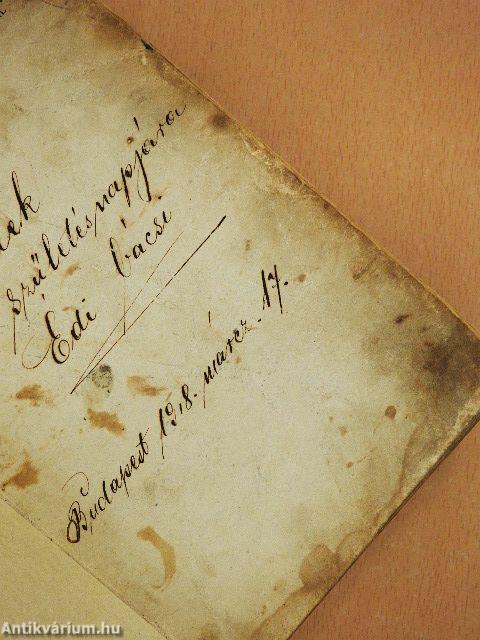 nek
születésnapjára
Edi bácsi
Budapest 1918. márcz. 17.
Antikvárium.hu